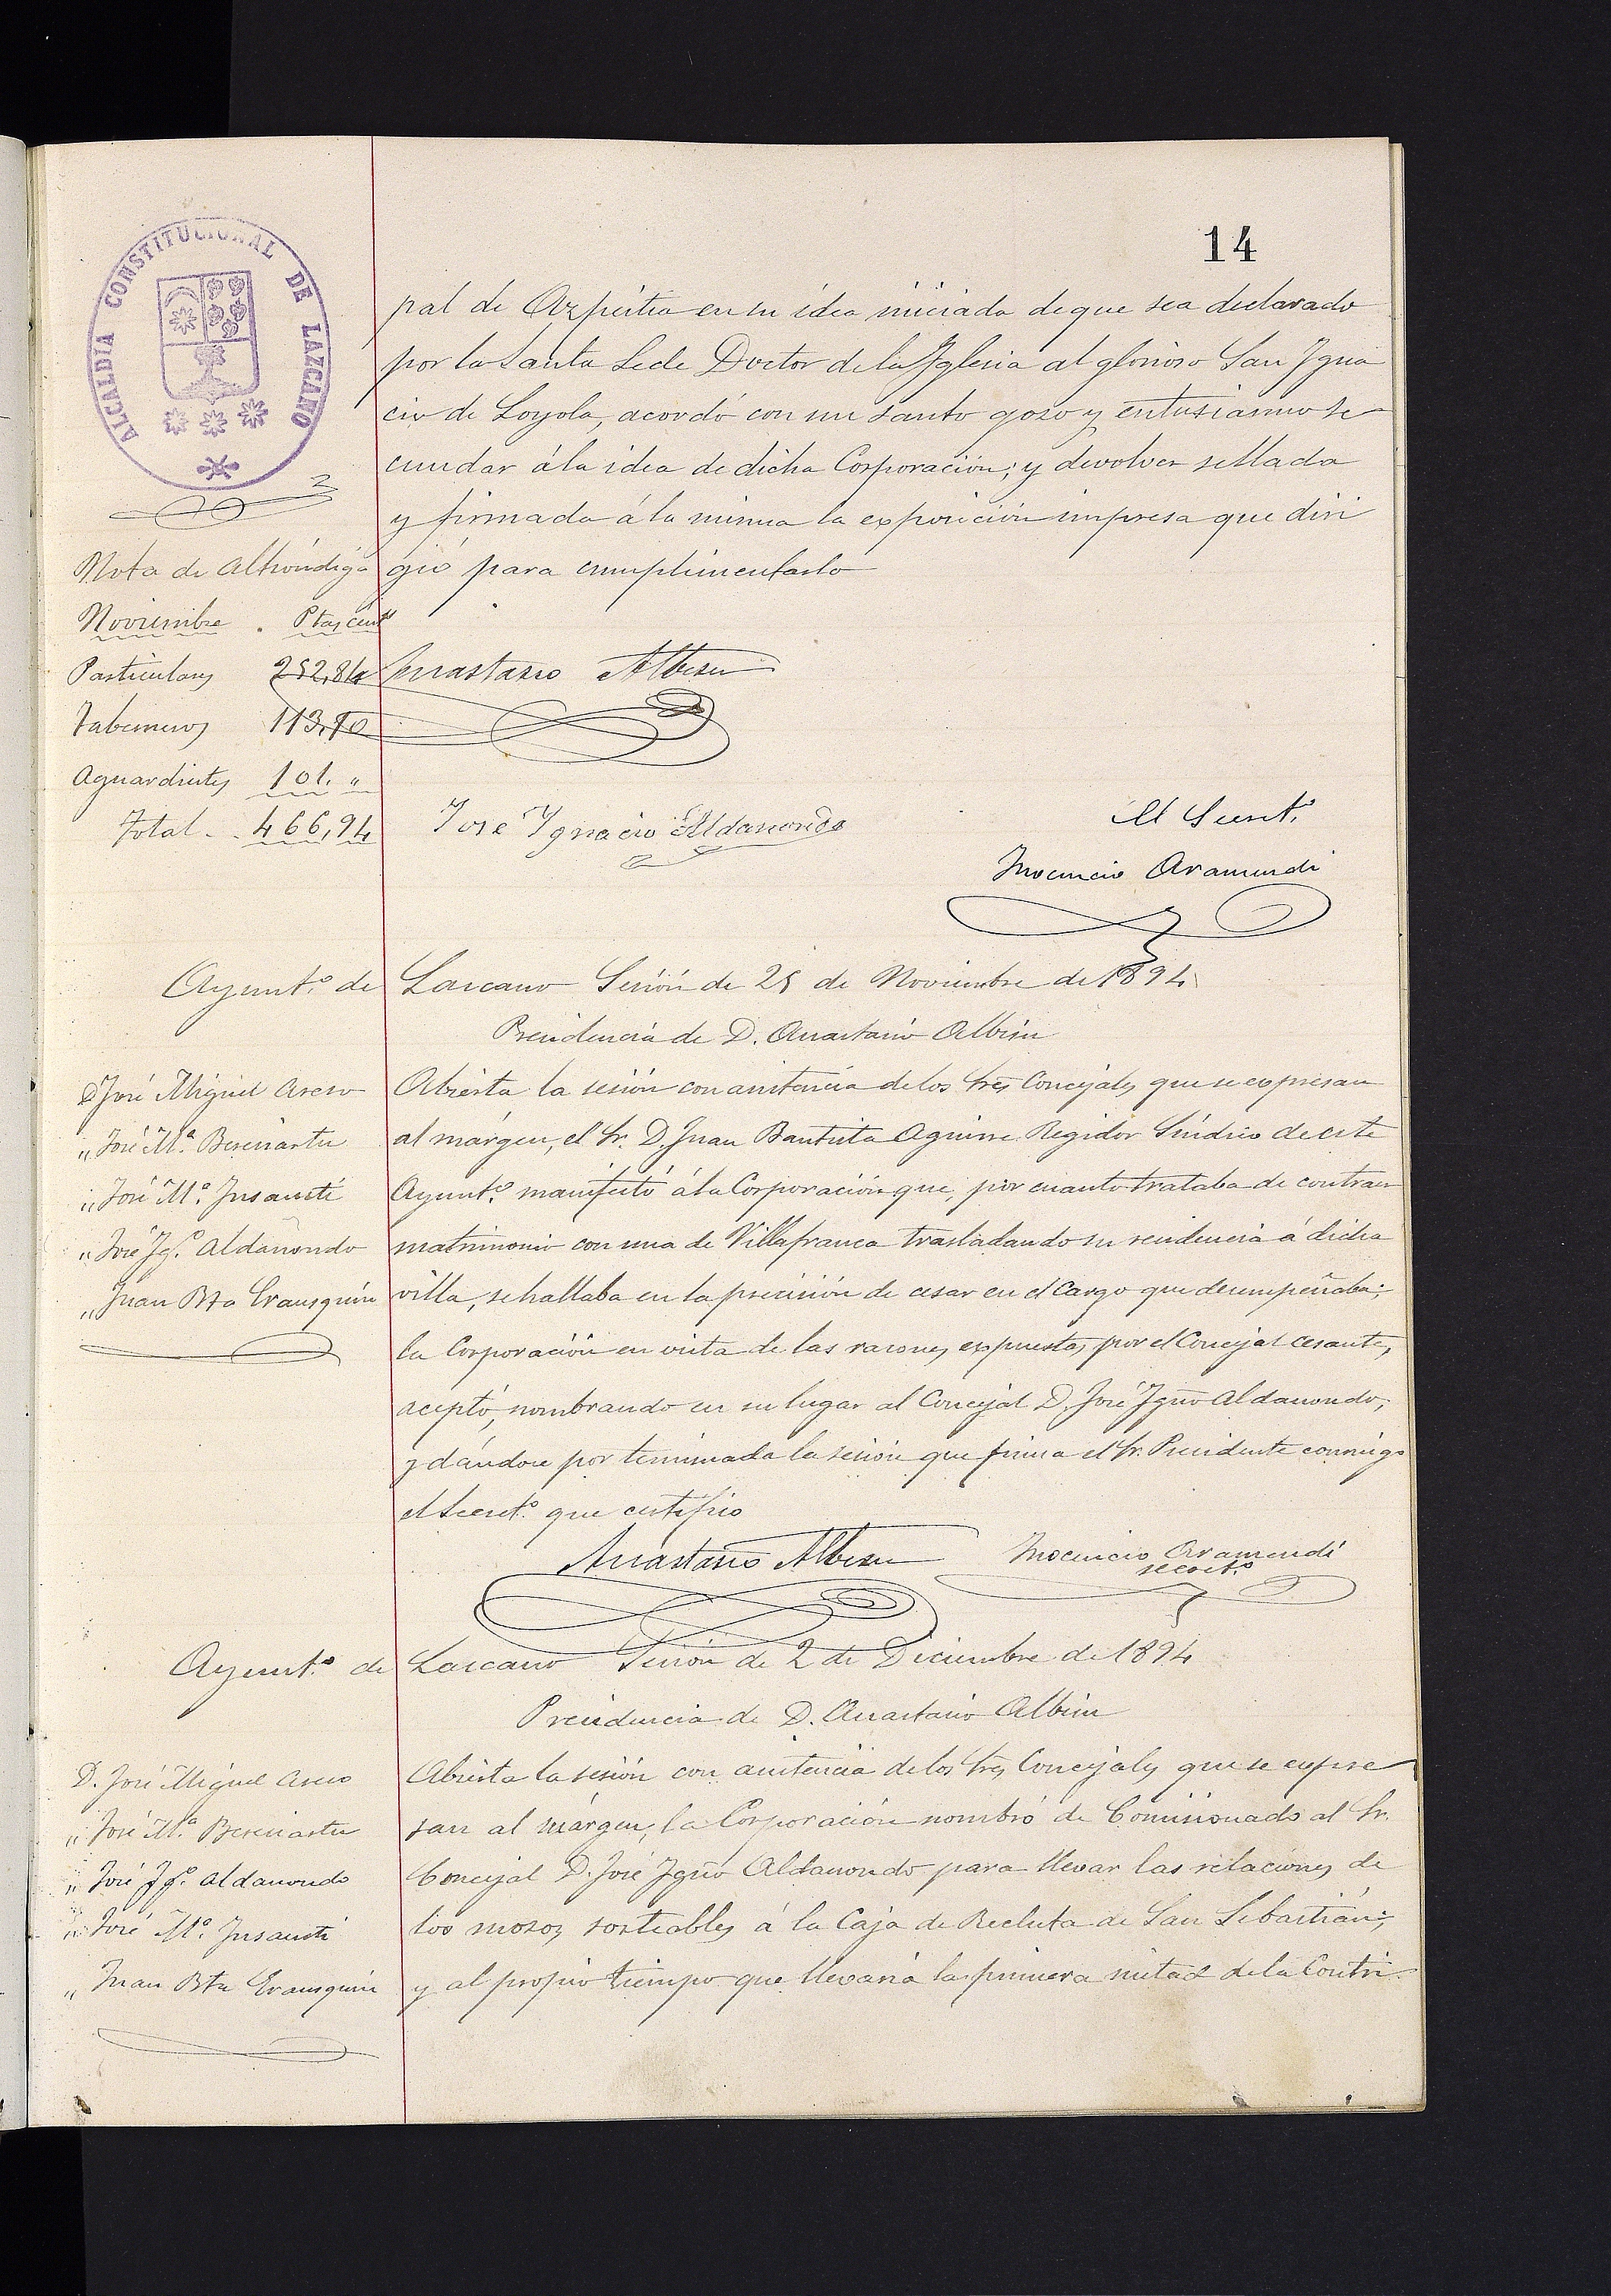 14
ALCALDIA CONSTITUCIONAL DE LAZCANO
pal de Azpeitia en su idea iniciada de que sea declarado
por la Santa Sede Doctor de la Yglesia al glorioso San Ygna
cio de Loyola, acordó con un santo gozo y entusiasmo se
cundar á la idea de dicha Corporación; y devolver sellada
y firmada á la misma la exposición impresa que diri
gió para cumplimentarlo
Nota de Alhóndiga
Noviembre . Ptas cents
Particulares 252,84
Taberneros 113,10
Aguardientes 101. "
Total . . 466,94
Anastasio Albisu
José Ygnacio Aldanondo
El Secret.º
Inocencio Aramendi
Ayunt.º de Lazcano Sesión de 25 de Noviembre de 1894
Presidencia de D. Anastasio Albisu
D José Miguel Aseso
" José M.ª Beresiartu
" José M.ª Insausti
" José Ig.º Aldanondo
" Juan Bta Erausquin
Abierta la sesión con asistencia de los Sres Concejales que se expresan
al márgen, el Sr. D. Juan Bautista Aguirre Regidor Síndico de este
Ayunt.º manifestó á la Corporación que, por cuanto trataba de contraer
matrimonio con una de Villafranca trasladando su residencia á dicha
villa, se hallaba en la precisión de cesar en el Cargo que desempeñaba;
la Corporación en vista de las razones expuestas por el Concejal cesante,
aceptó, nombrando en su lugar al Concejal D. José Igno Aldanondo;
y dándose por terminada la sesión que firma el Sr. Presidente conmigo
el Secret.º que certifico
Anastasio Albisu Inocencio Aramendi
secret.º
Ayunt.º de Lazcano Sesión de 2 de Diciembre de 1894
Presidencia de D. Anastasio Albisu
D. José Miguel Aseso
" José M.ª Beresiartu
" José Ig.º Aldanondo
" José M.ª Insausti
" Juan Bta Erausquin
Abierta la sesión con asistencia de los Sres Concejales que se expre
san al márgen, la Corporación nombró de Comisionado al Sr.
Concejal D. José Igno Aldanondo para llevar las relaciones de
los mozos sorteables á la Caja de Recluta de San Sebastián;
y al propio tiempo que llevaria la primera mitad de la Contri-